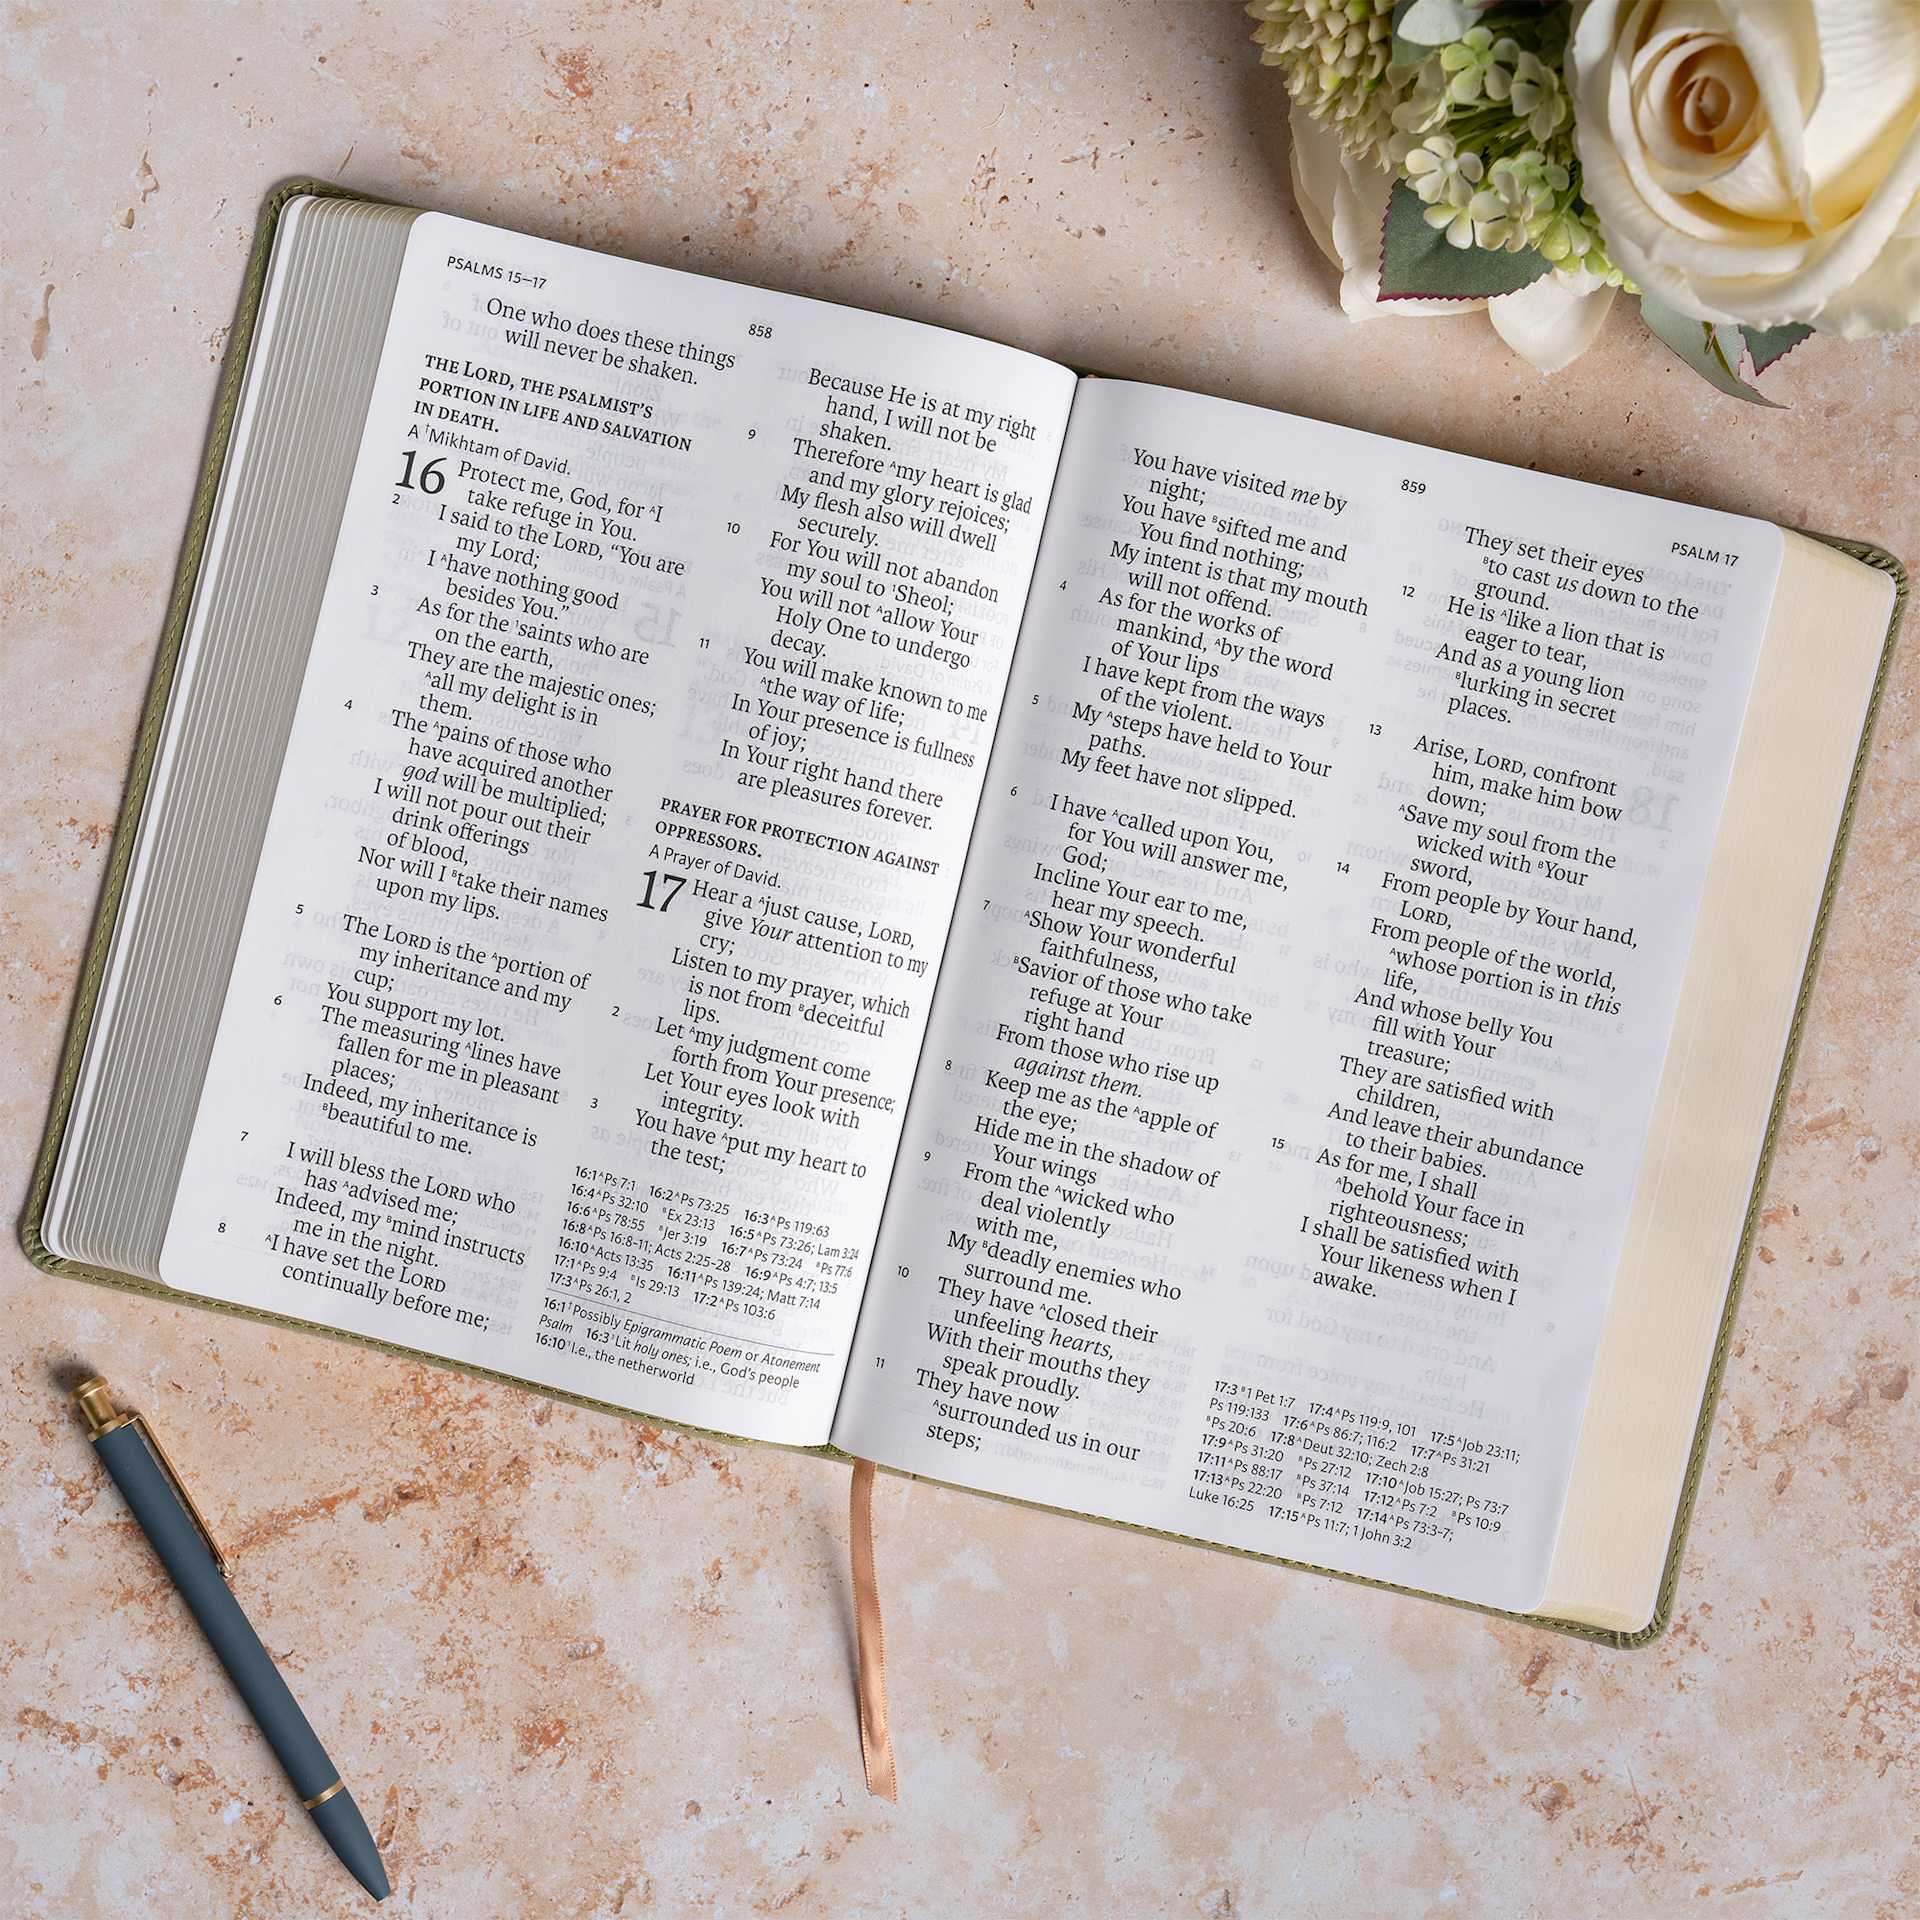 PSALMS 15–17
858
One who does these things
will never be shaken.
THE LORD, THE PSALMIST'S
PORTION IN LIFE AND SALVATION
IN DEATH.
A †Mikhtam of David.
16 Protect me, God, for ᴬI
take refuge in You.
2 I said to the LORD, “You are
my Lord;
I ᴬhave nothing good
besides You.”
3 As for the ¹saints who are
on the earth,
They are the majestic ones;
ᴬall my delight is in
them.
4 The ᴬpains of those who
have acquired another
god will be multiplied;
I will not pour out their
drink offerings
of blood,
Nor will I ᴮtake their names
upon my lips.
5 The LORD is the ᴬportion of
my inheritance and my
cup;
You support my lot.
6 The measuring ᴬlines have
fallen for me in pleasant
places;
Indeed, my inheritance is
ᴮbeautiful to me.
7 I will bless the LORD who
has ᴬadvised me;
Indeed, my ᴮmind instructs
me in the night.
8 ᴬI have set the LORD
continually before me;
Because He is at my right
hand, I will not be
shaken.
9 Therefore ᴬmy heart is glad
and my glory rejoices;
My flesh also will dwell
securely.
10 For You will not abandon
my soul to ¹Sheol;
You will not ᴬallow Your
Holy One to undergo
decay.
11 You will make known to me
ᴬthe way of life;
In Your presence is fullness
of joy;
In Your right hand there
are pleasures forever.
PRAYER FOR PROTECTION AGAINST
OPPRESSORS.
A Prayer of David.
17 Hear a ᴬjust cause, LORD,
give Your attention to my
cry;
Listen to my prayer, which
is not from ᴮdeceitful
lips.
2 Let ᴬmy judgment come
forth from Your presence;
Let Your eyes look with
integrity.
3 You have ᴬput my heart to
the test;
16:1 ᴬPs 7:1 16:2 ᴬPs 73:25 16:3 ᴬPs 119:63
16:4 ᴬPs 32:10 ᴮEx 23:13 16:5 ᴬPs 73:26; Lam 3:24
16:6 ᴬPs 78:55 ᴮJer 3:19 16:7 ᴬPs 73:24 ᴮPs 77:6
16:8 ᴬPs 16:8-11; Acts 2:25-28 16:9 ᴬPs 4:7; 13:5
16:10 ᴬActs 13:35 16:11 ᴬPs 139:24; Matt 7:14
17:1 ᴬPs 9:4 ᴮIs 29:13 17:2 ᴬPs 103:6
17:3 ᴬPs 26:1, 2
16:1 †Possibly Epigrammatic Poem or Atonement
Psalm 16:3 ¹Lit holy ones; i.e., God's people
16:10 ¹I.e., the netherworld
859
PSALM 17
You have visited me by
night;
You have ᴮsifted me and
You find nothing;
My intent is that my mouth
will not offend.
4 As for the works of
mankind, ᴬby the word
of Your lips
I have kept from the ways
of the violent.
5 My ᴬsteps have held to Your
paths.
My feet have not slipped.
6 I have ᴬcalled upon You,
for You will answer me,
God;
Incline Your ear to me,
hear my speech.
7 ᴬShow Your wonderful
faithfulness,
ᴮSavior of those who take
refuge at Your
right hand
From those who rise up
against them.
8 Keep me as the ᴬapple of
the eye;
Hide me in the shadow of
Your wings
9 From the ᴬwicked who
deal violently
with me,
My ᴮdeadly enemies who
surround me.
10 They have ᴬclosed their
unfeeling hearts,
With their mouths they
speak proudly.
11 They have now
ᴬsurrounded us in our
steps;
They set their eyes
ᴮto cast us down to the
ground.
12 He is ᴬlike a lion that is
eager to tear,
And as a young lion
ᴮlurking in secret
places.
13 Arise, LORD, confront
him, make him bow
down;
ᴬSave my soul from the
wicked with ᴮYour
sword,
14 From people by Your hand,
LORD,
From people of the world,
ᴬwhose portion is in this
life,
And whose belly You
fill with Your
treasure;
They are satisfied with
children,
And leave their abundance
to their babies.
15 As for me, I shall
ᴬbehold Your face in
righteousness;
I shall be satisfied with
Your likeness when I
awake.
17:3 ᴮ1 Pet 1:7 17:4 ᴬPs 119:9, 101 17:5 ᴬJob 23:11;
Ps 119:133 17:6 ᴬPs 86:7; 116:2 17:7 ᴬPs 31:21
ᴮPs 20:6 17:8 ᴬDeut 32:10; Zech 2:8
17:9 ᴬPs 31:20 ᴮPs 27:12 17:10 ᴬJob 15:27; Ps 73:7
17:11 ᴬPs 88:17 ᴮPs 37:14 17:12 ᴬPs 7:2 ᴮPs 10:9
17:13 ᴬPs 22:20 ᴮPs 7:12 17:14 ᴬPs 73:3-7;
Luke 16:25 17:15 ᴬPs 11:7; 1 John 3:2